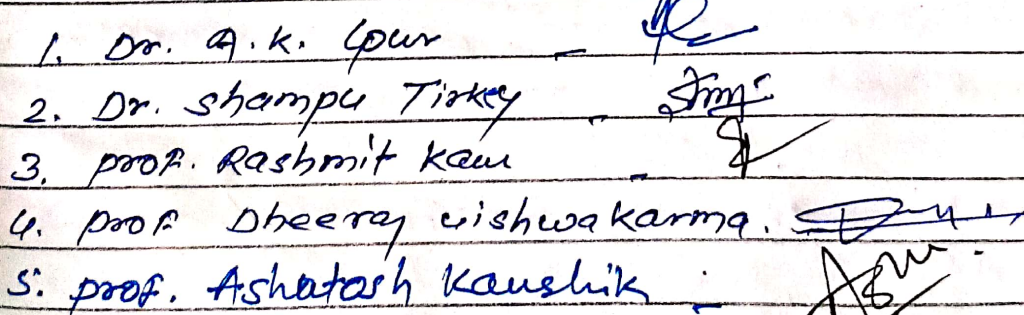 1. Dr. A.K. Gour -
2. Dr. Shampu Tirkey -
3. Prof. Rashmit Kaur -
4. Prof Dheeraj vishwakarma.
5. Prof. Ashutosh Kaushik -